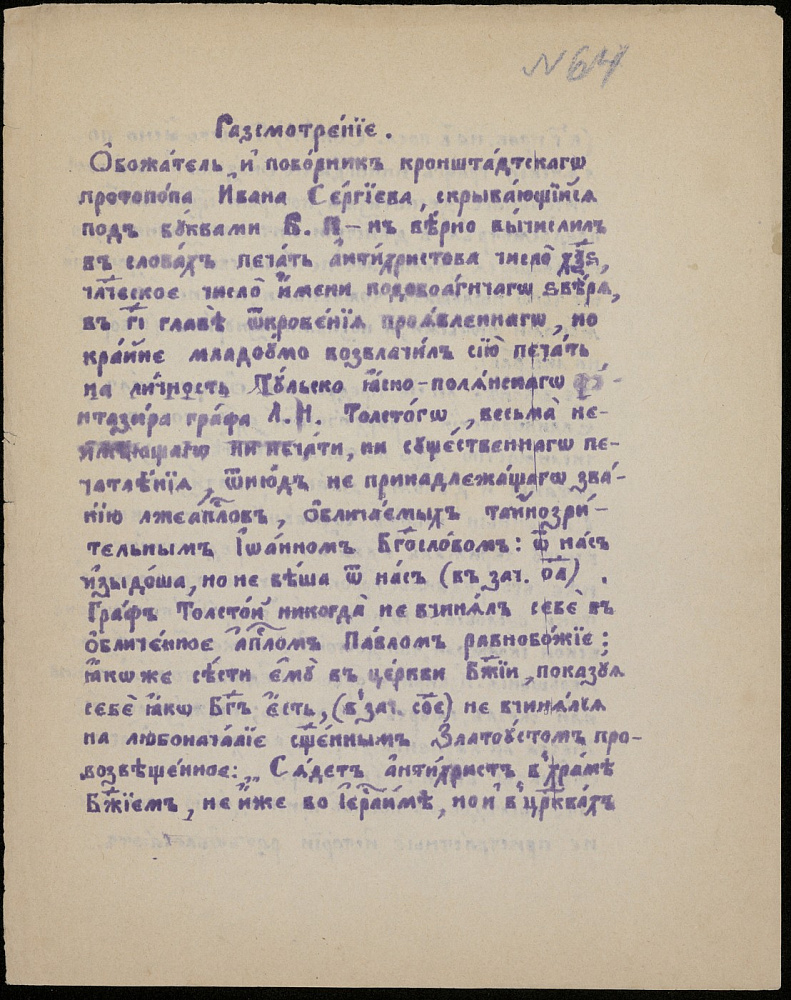 N 64
Разсмотре́нїе.
Ѻбожа́тель и҆ побо́рникъ кронштадтскагѡ
протопо́па И҆́вана Се́ргїева, скрыва́ющїйся
подъ бꙋ́квами Б. П – нъ вѣ́рно вы́числилъ
въ слова́хъ печа́ть а҆нти́христова число̀ х҃ѯѕ,
чл҃ческое число̀ и҆́мени водовоа́гнчагѡ ѕвѣ́рѧ,
въ г҃і главѣ̀ ѿкрове́нїѧ проѧ́вленнагѡ, но
кра́йне младоꙋ́мо возвлачи́лъ сїю̀ печа́ть
на ли́чность Тꙋ́льско ꙗ҆́сно-полѧ́нскагѡ фа-
нтази́ра гра́фа Л. Н. Толсто́гѡ, весьма̀ не-
и҆мѣ́ющагѡ ни печа́ти, ни сꙋще́ственнагѡ пе-
чатлѣ́нїѧ, ѿню́дъ не принадлежа́щагѡ зва́-
нїю лжеап҃ловъ, ѻ҆блича́емыхъ тайнозри́-
тельнымъ І҆ѡа́нномъ Бг҃осло́вомъ: ѿ на́съ
и҆зыдо́ша, но не бѣ́ша ѿ на́съ (въ зач. о҃а) .
Гра́фъ Толсто́й никогда̀ не вчинѧ́лъ себѐ въ
ѻ҆бличе́нное а҆п҃ломъ Па́вломъ равнобо́жїе;
ꙗ҆́коже сѣ́сти є҆мꙋ̀ въ це́ркви Бж҃їи, показꙋ́ѧ
себѐ ꙗ҆́кѡ Бг҃ъ є҆́сть, (в зач. со҃е) не вчинѧ́лсѧ
на любонача́лїе сщ҃е́ннымъ Златоꙋ́стомъ про-
возвѣще́нное: „ Сѧ́детъ а҆нти́христъ в хра́мѣ
Бж҃їемъ, не и҆́же во І҆ерⷭ҇ли́мѣ, но и҆ в цр҃ква́хъ